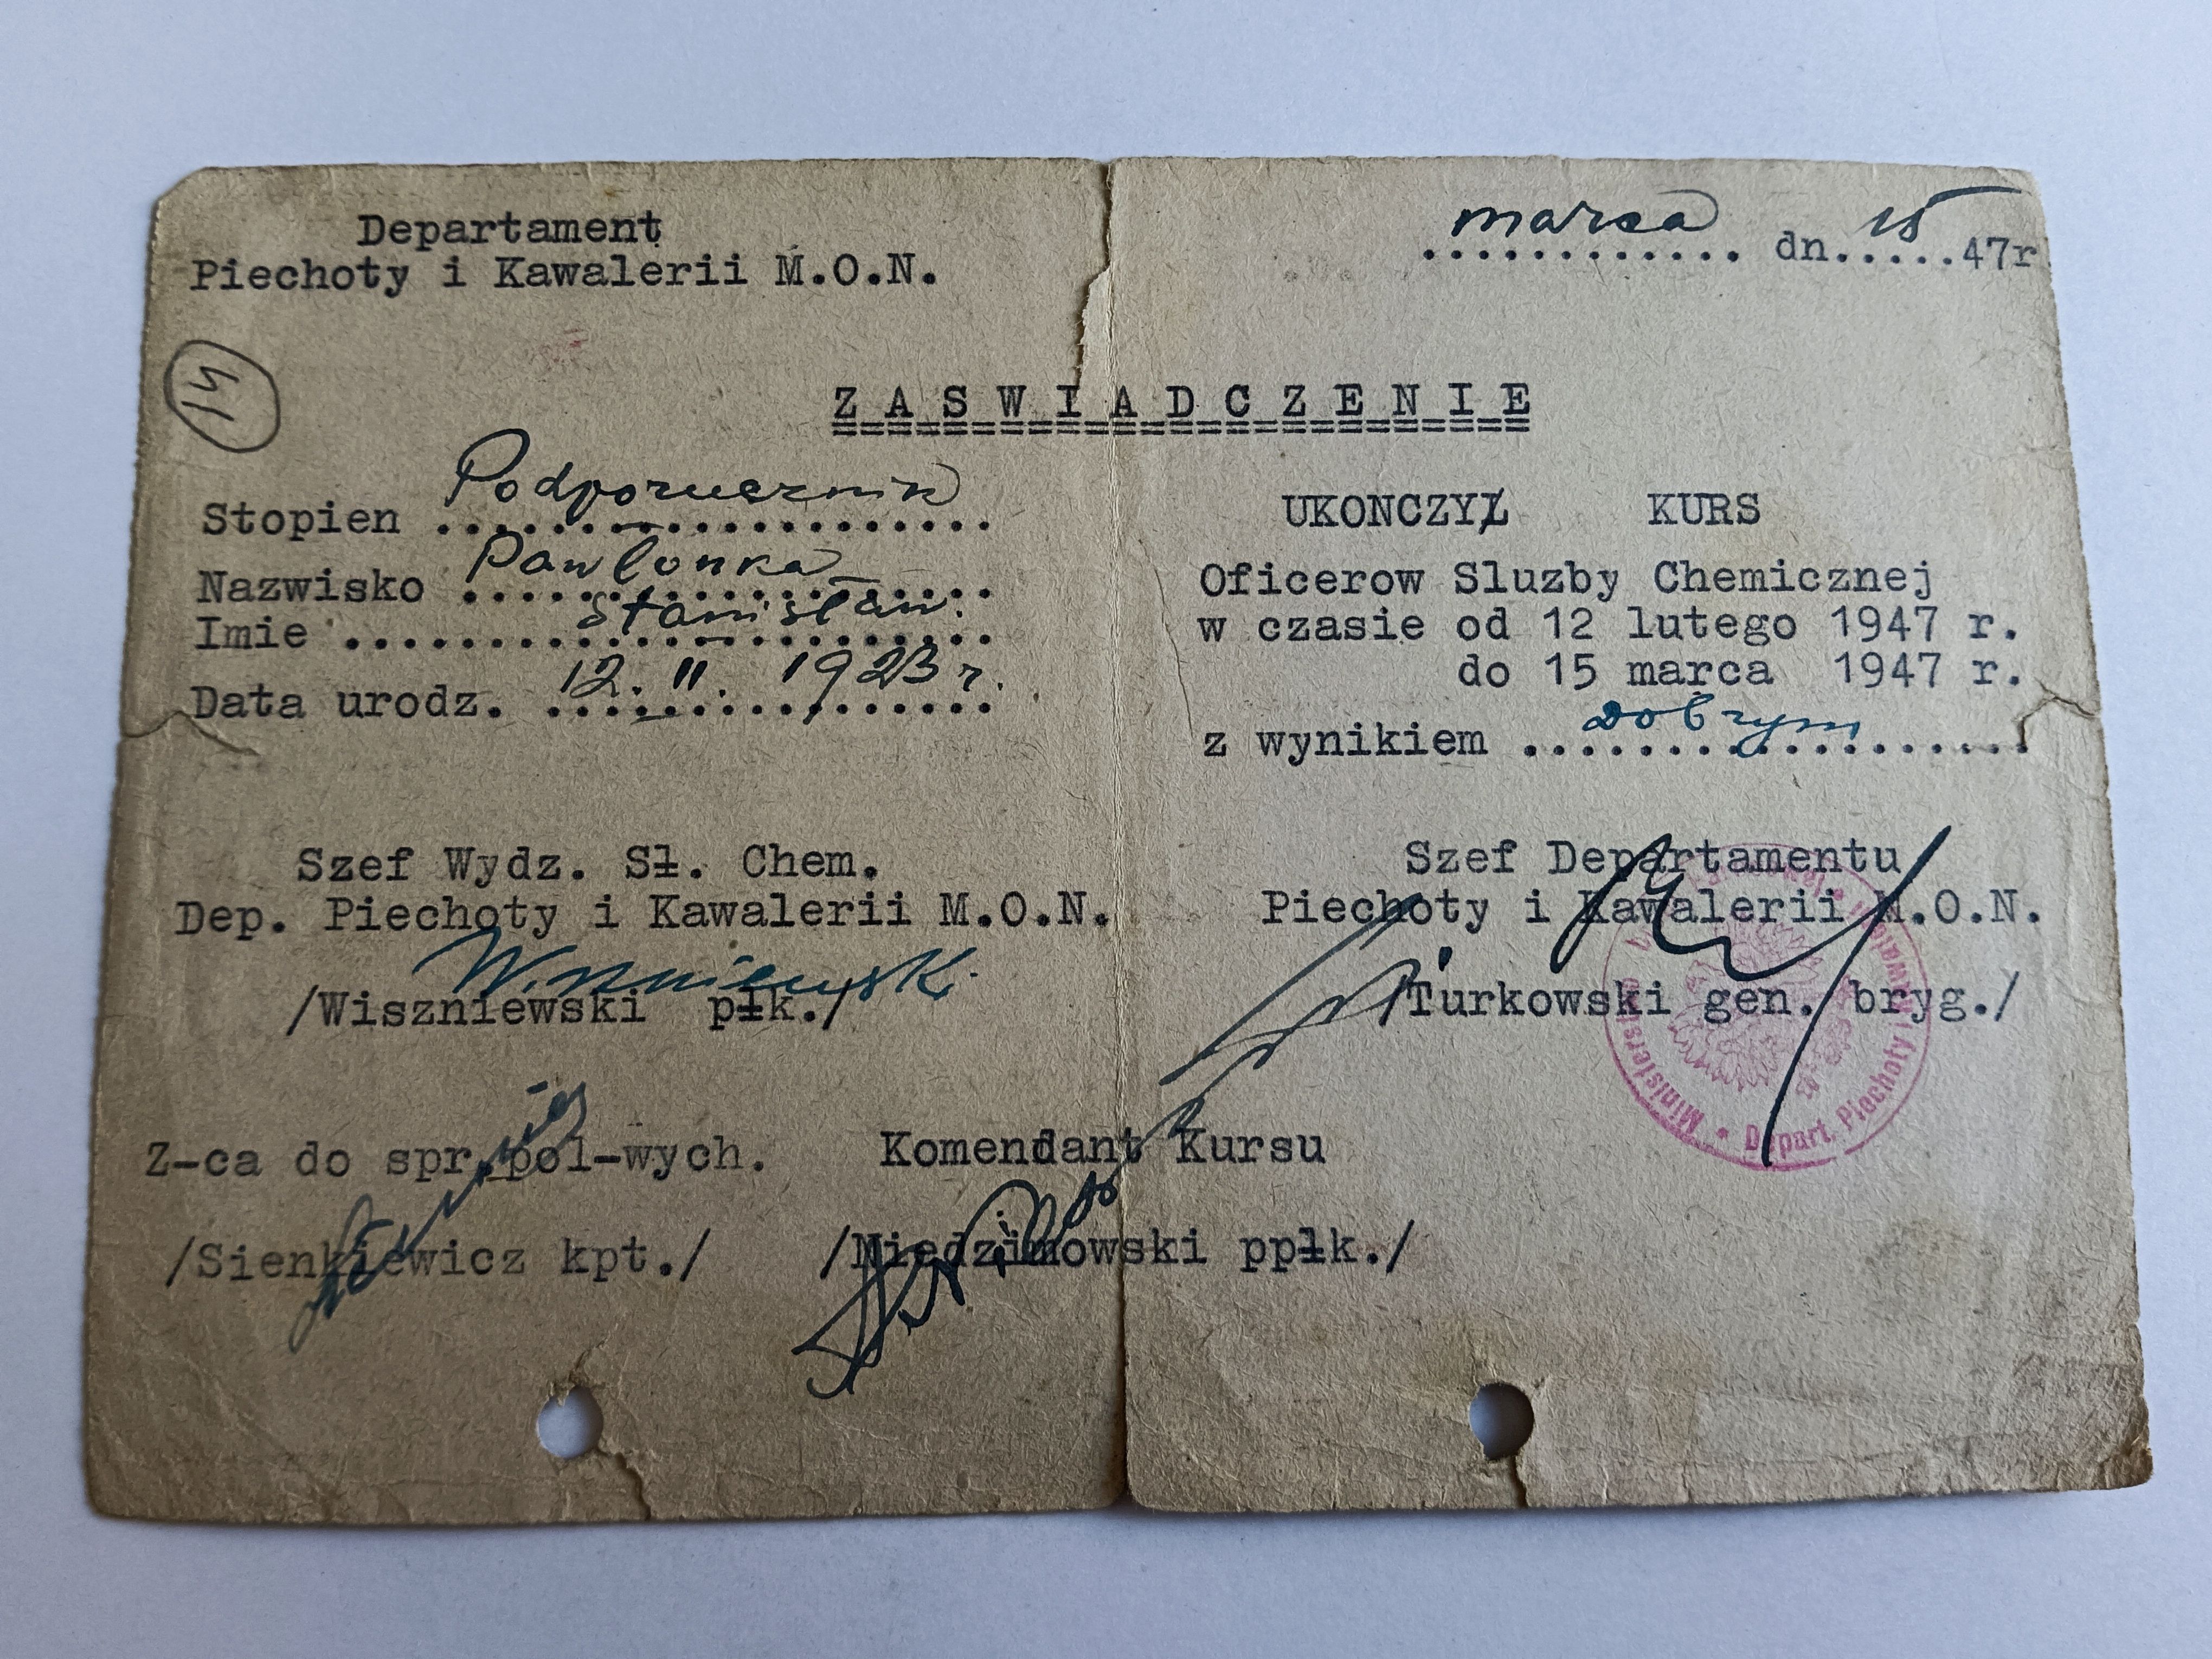 Departament
Piechoty i Kawalerii M.O.N.
marca dn. 15 47r
14
ZASWIADCZENIE
Stopien Podporucznik
Nazwisko Pawlonka
Imie Stanisław.
Data urodz. 12. II. 1923 r.
UKONCZYŁ KURS
Oficerow Sluzby Chemicznej
w czasie od 12 lutego 1947 r.
do 15 marca 1947 r.
z wynikiem Dobrym
Szef Wydz. Sł. Chem.
Dep. Piechoty i Kawalerii M.O.N.
Wiszniewski
/Wiszniewski płk./
Szef Departamentu
Piechoty i Kawalerii M.O.N.
/Turkowski gen. bryg./
Ministerstwo
Depart. Piechoty i Kawalerii
Z-ca do spr. pol-wych.
/Sienkiewicz kpt./
Komendant Kursu
/Niedzimowski ppłk./